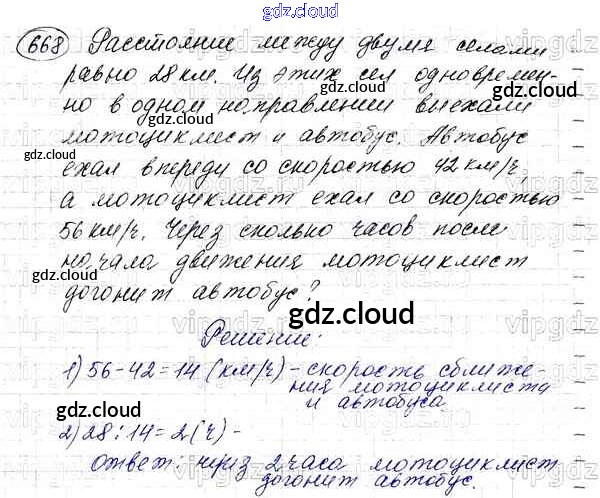 gdz.cloud
668 Расстояние между двумя селами
gdz.cloud
равно 28 км. Из этих сел одновремен-
но в одном направлении выехали
мотоциклист и автобус. Автобус
gdz.cloud
ехал впереди со скоростью 42 км/ч,
а мотоциклист ехал со скоростью
56 км/ч. Через сколько часов после
начала движения мотоциклист
догонит автобус?
gdz.cloud
Решение:
1) 56-42=14 (км/ч) - скорость сближе-
ния мотоциклиста
и автобуса
gdz.cloud
2) 28:14=2(ч) -
ответ: через 2 часа мотоциклист
догонит автобус.